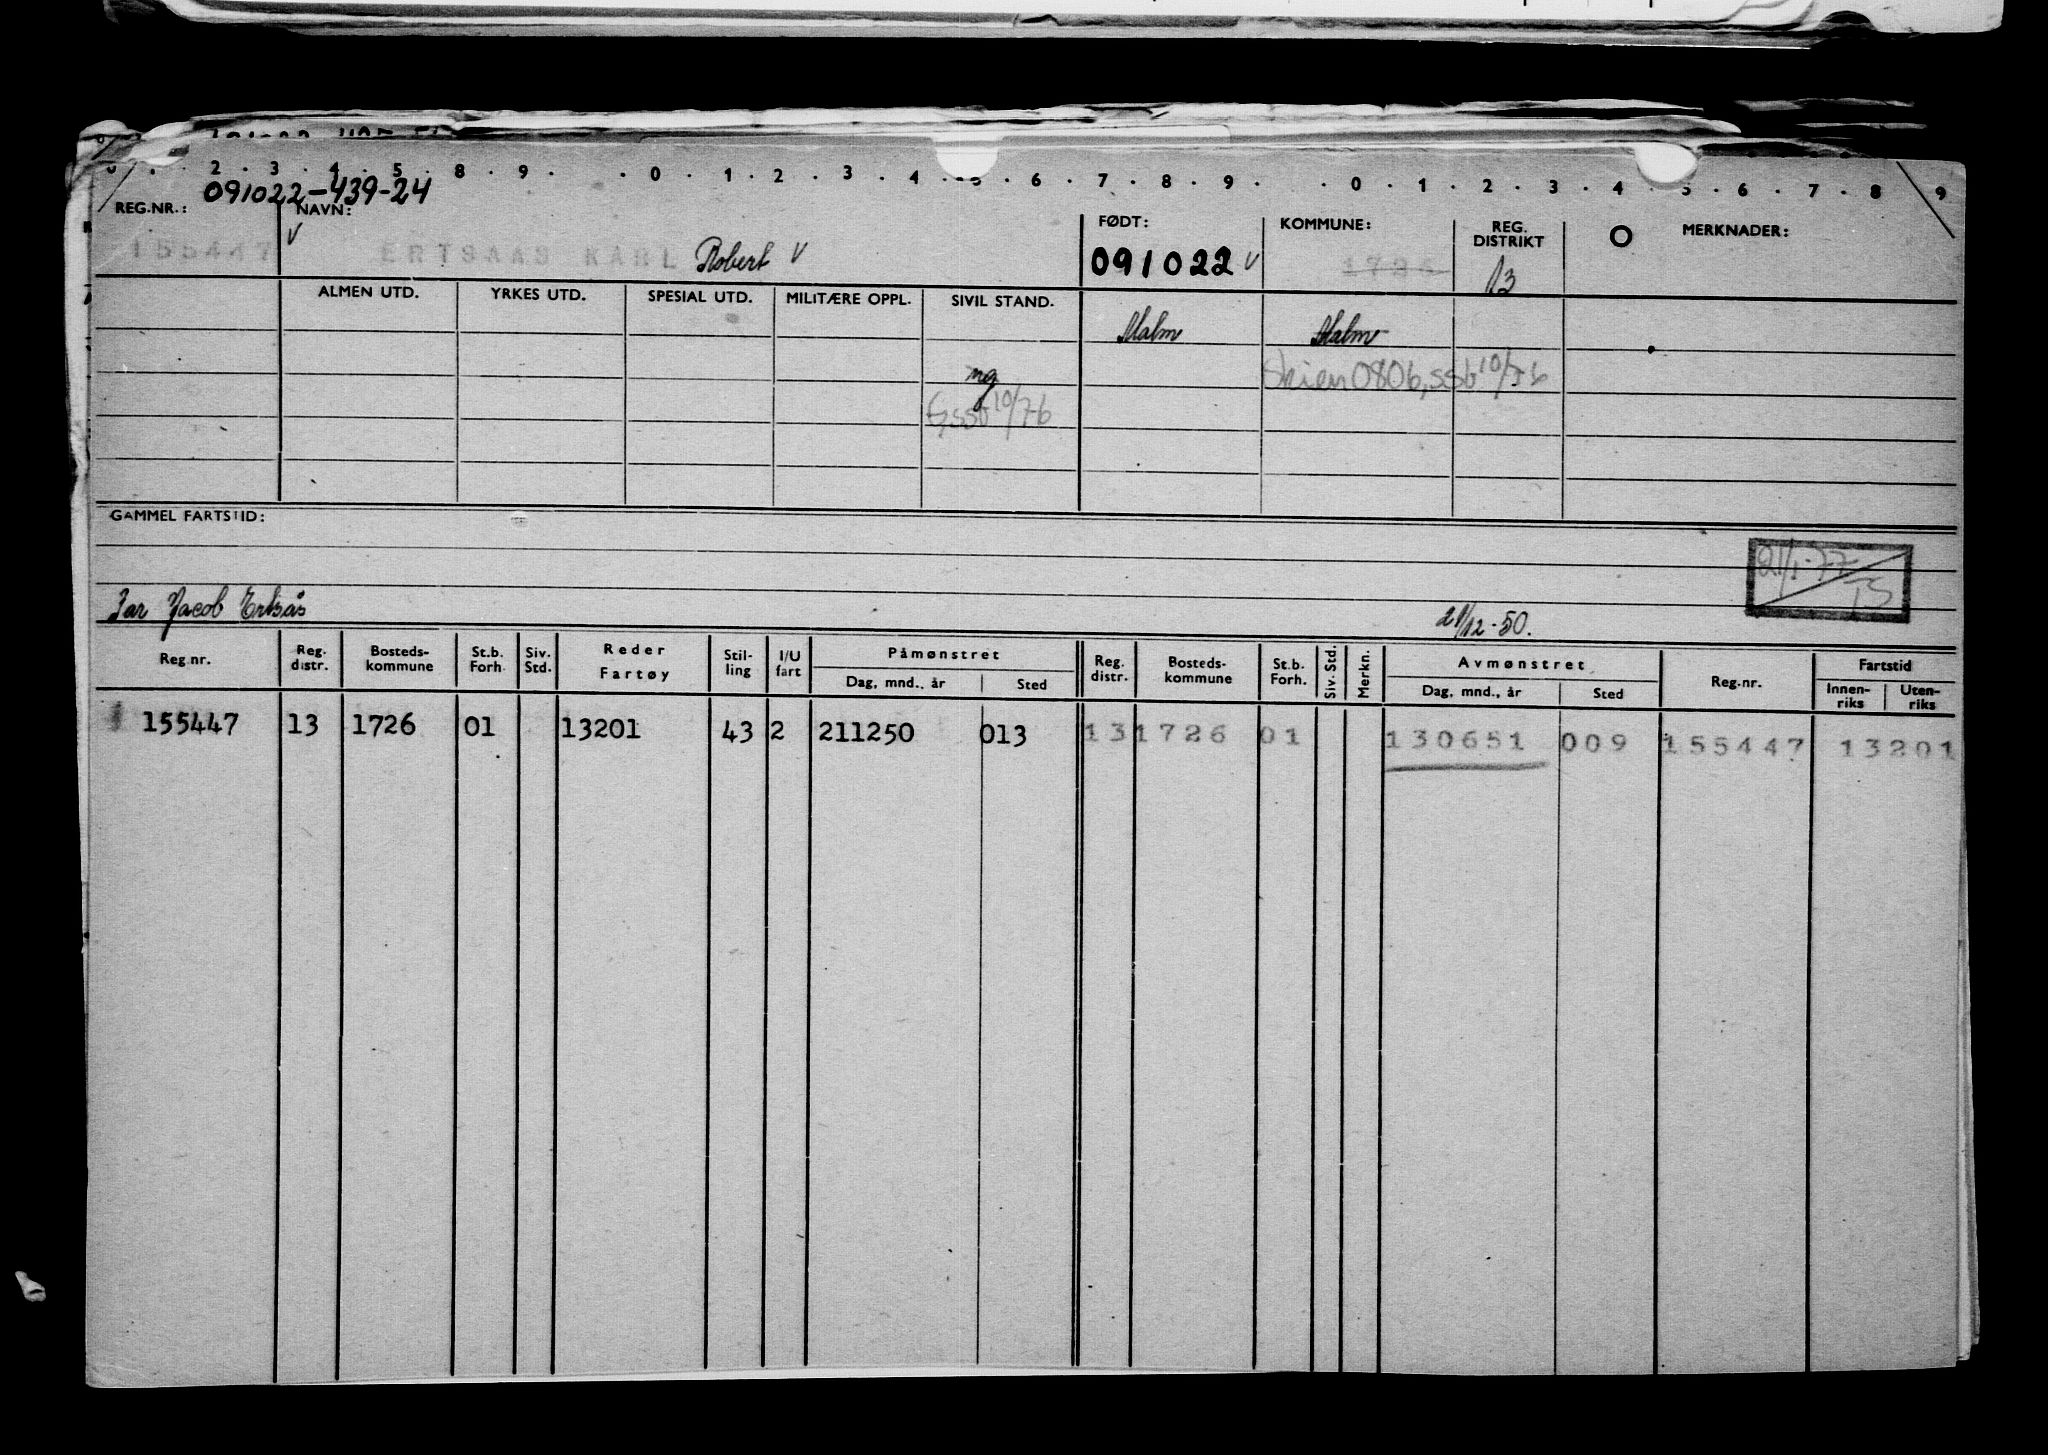 2 . 3 . 4 . 5 8 . 9 . . 0 . 1 . 2 . 3 . 4 . 5 . 6 . 7 . 8 . 9 . . 0 . 1 . 2 . 3 . 4 . 5 . 6 . 7 . 8 9
091022-439-24
REG.NR.: NAVN: FØDT: KOMMUNE: REG. DISTRIKT O MERKNADER:
155447 V ERTSAAS KARL Robert V 091022 V 13
ALMEN UTD. YRKES UTD. SPESIAL UTD. MILITÆRE OPPL. SIVIL STAND.
Malm Malm
ug Skien 0806, ssb 10/76
G, ssb 10/76
GAMMEL FARTSTID:
21/1-77
TS
Far Jacob Ertsås 21/12-50.
Reg.nr. Reg. distr. Bosteds-kommune St.b. Forh. Siv. Std. Reder Fartøy Stil-ling I/U fart Påmønstret Dag, mnd., år Sted Reg. distr. Bosteds-kommune St.b. Forh. Siv. Std. Merkn. Avmønstret Dag, mnd., år Sted Reg.nr. Fartstid Innen-riks Uten-riks
155447 13 1726 01 13201 43 2 211250 013 13 1726 01 130651 009 155447 13201